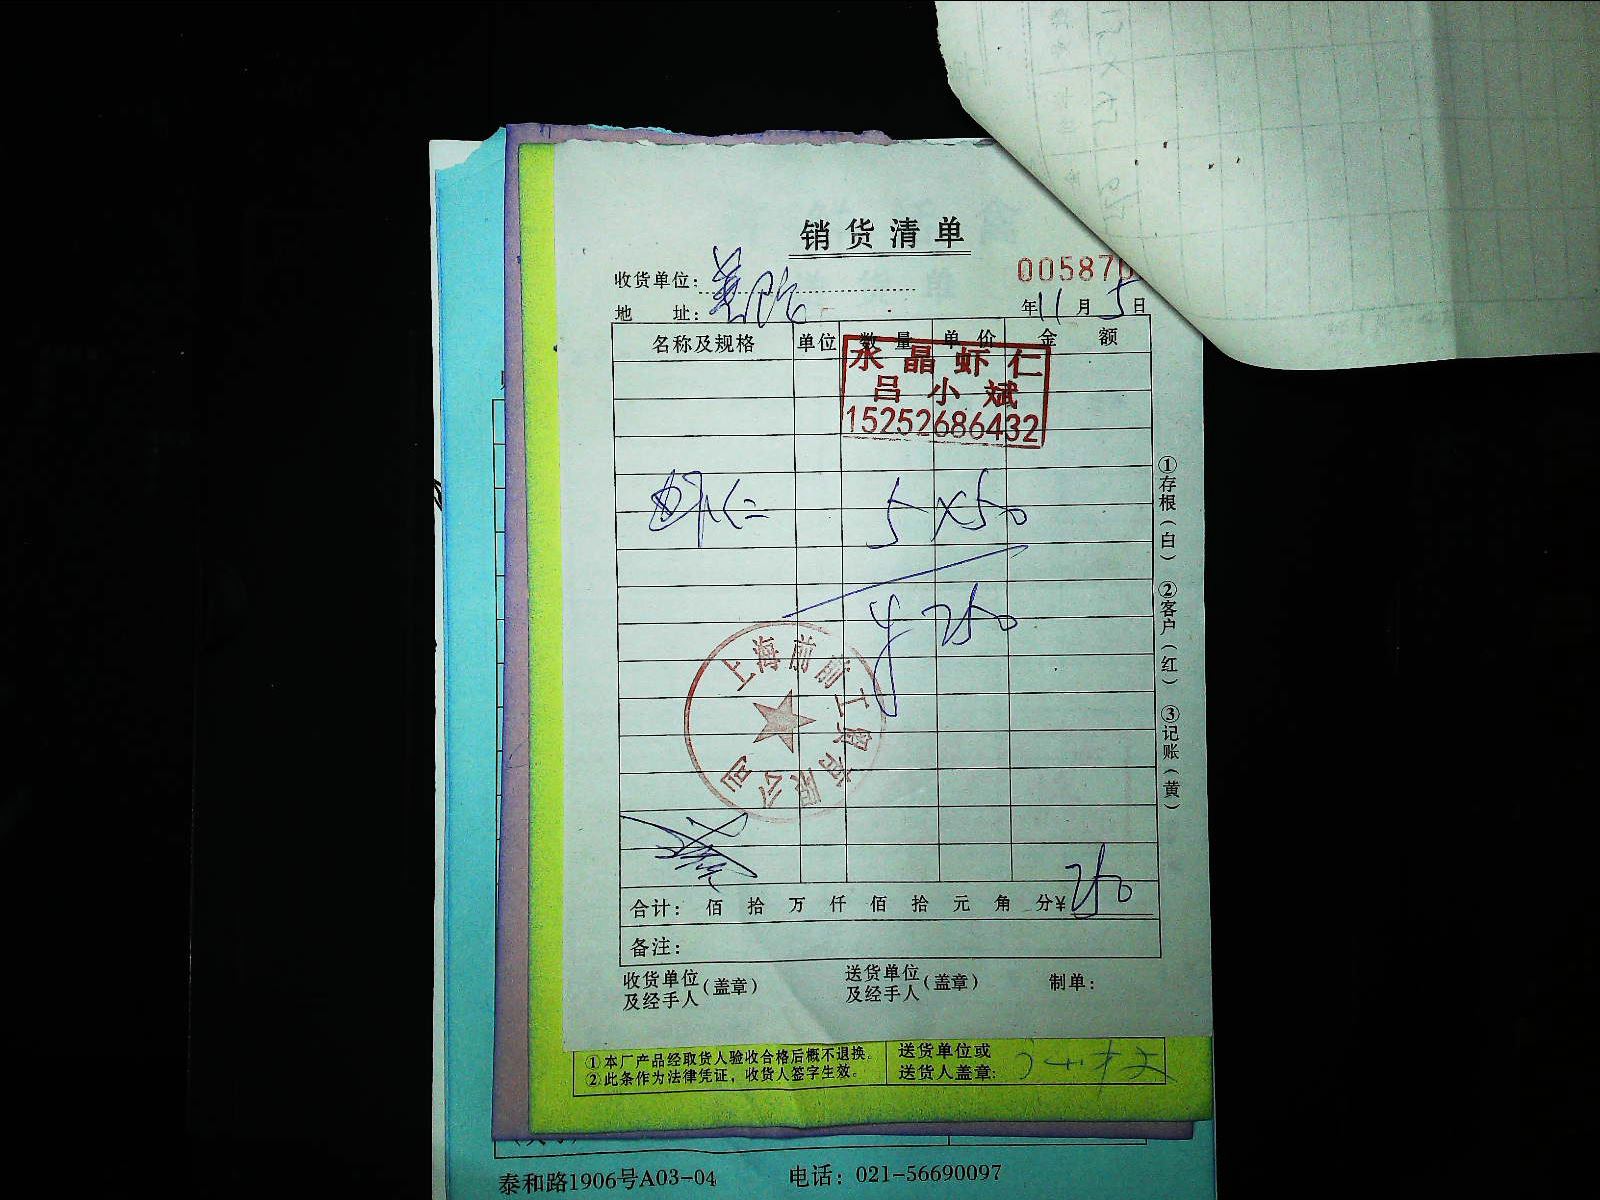 销货清单
收货单位：
005870
地 址：
年11月5日
名称及规格 单位 数量 单价 金额
水晶虾仁
吕小斌
15252686432
虾仁 5×50
¥250
上海前前工贸有限公司
合计： 佰 拾 万 仟 佰 拾 元 角 分¥250
备注：
收货单位及经手人（盖章） 送货单位及经手人（盖章） 制单：
①存根（白） ②客户（红） ③记账（黄）
①本厂产品经取货人验收合格后概不退换。
②此条作为法律凭证，收货人签字生效。
送货单位或
送货人盖章：
泰和路1906号A03-04 电话：021-56690097